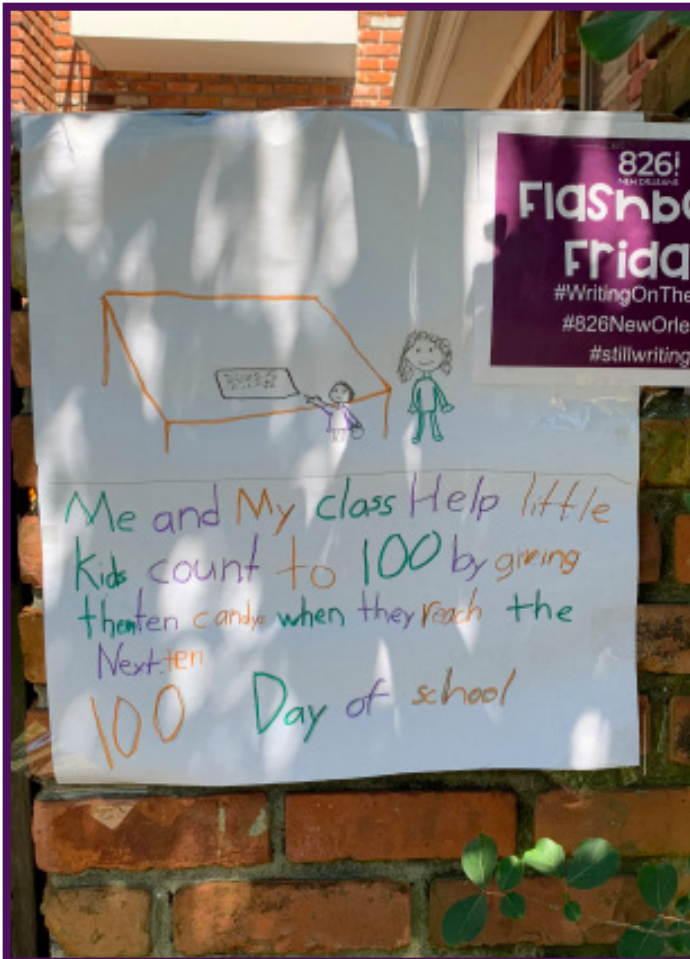 826!
NEW ORLEANS
Flashb
Frida
#WritingOnThe
#826NewOrle
#stillwriting
Me and My class Help little
kids count to 100 by giving
them ten candys when they reach the
Next ten
100 Day of school